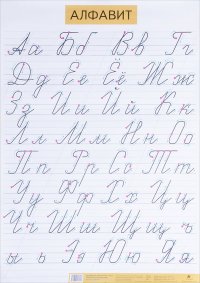 АЛФАВИТ
Аа Бб Вв Гг
Дд Ее Её Жж
Зз Ии Йй Кк
Лл Мм Нн Оо
Пп Рр Сс Тт
Уу Фф Хх Цц
Чч Шш Щщ ъ
ы ь Ээ Юю Яя